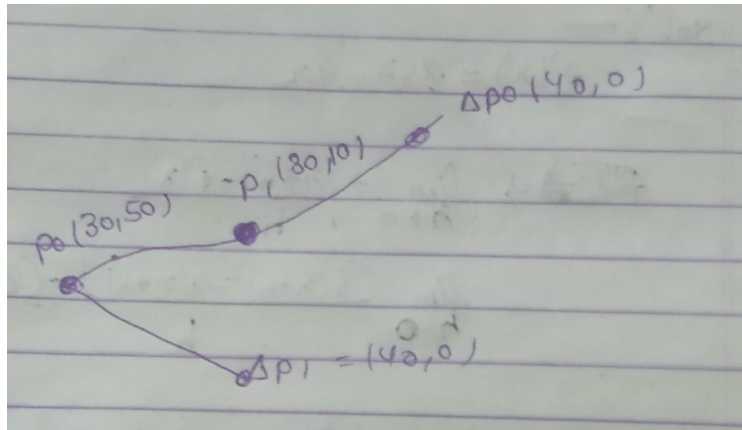 Δp0 (40,0)
P1 (80,10)
p0 (30,50)
Δp1 = (40,0)